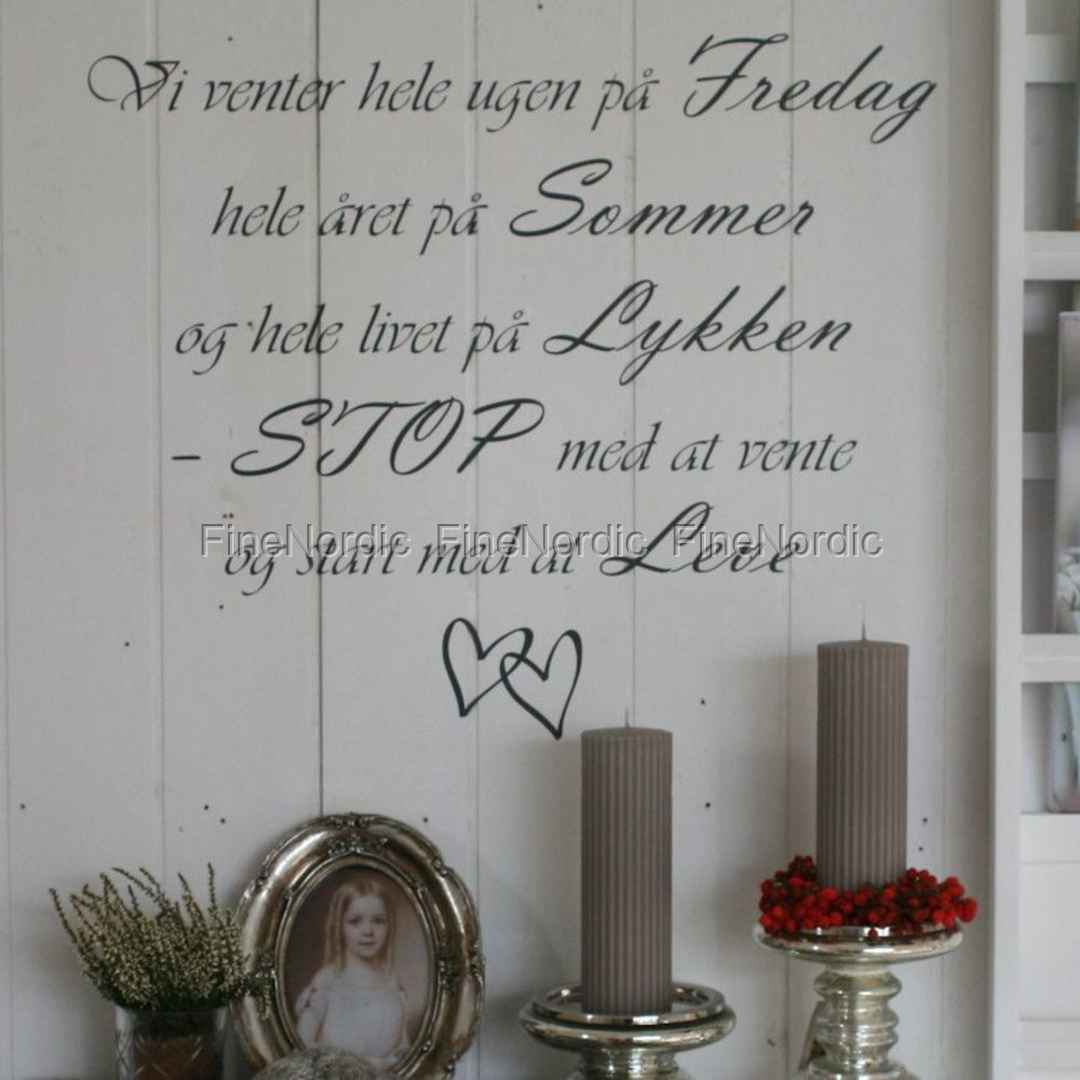 Vi venter hele ugen på Fredag
hele året på Sommer
og hele livet på Lykken
- STOP med at vente
og start med at Leve
FineNordic FineNordic FineNordic